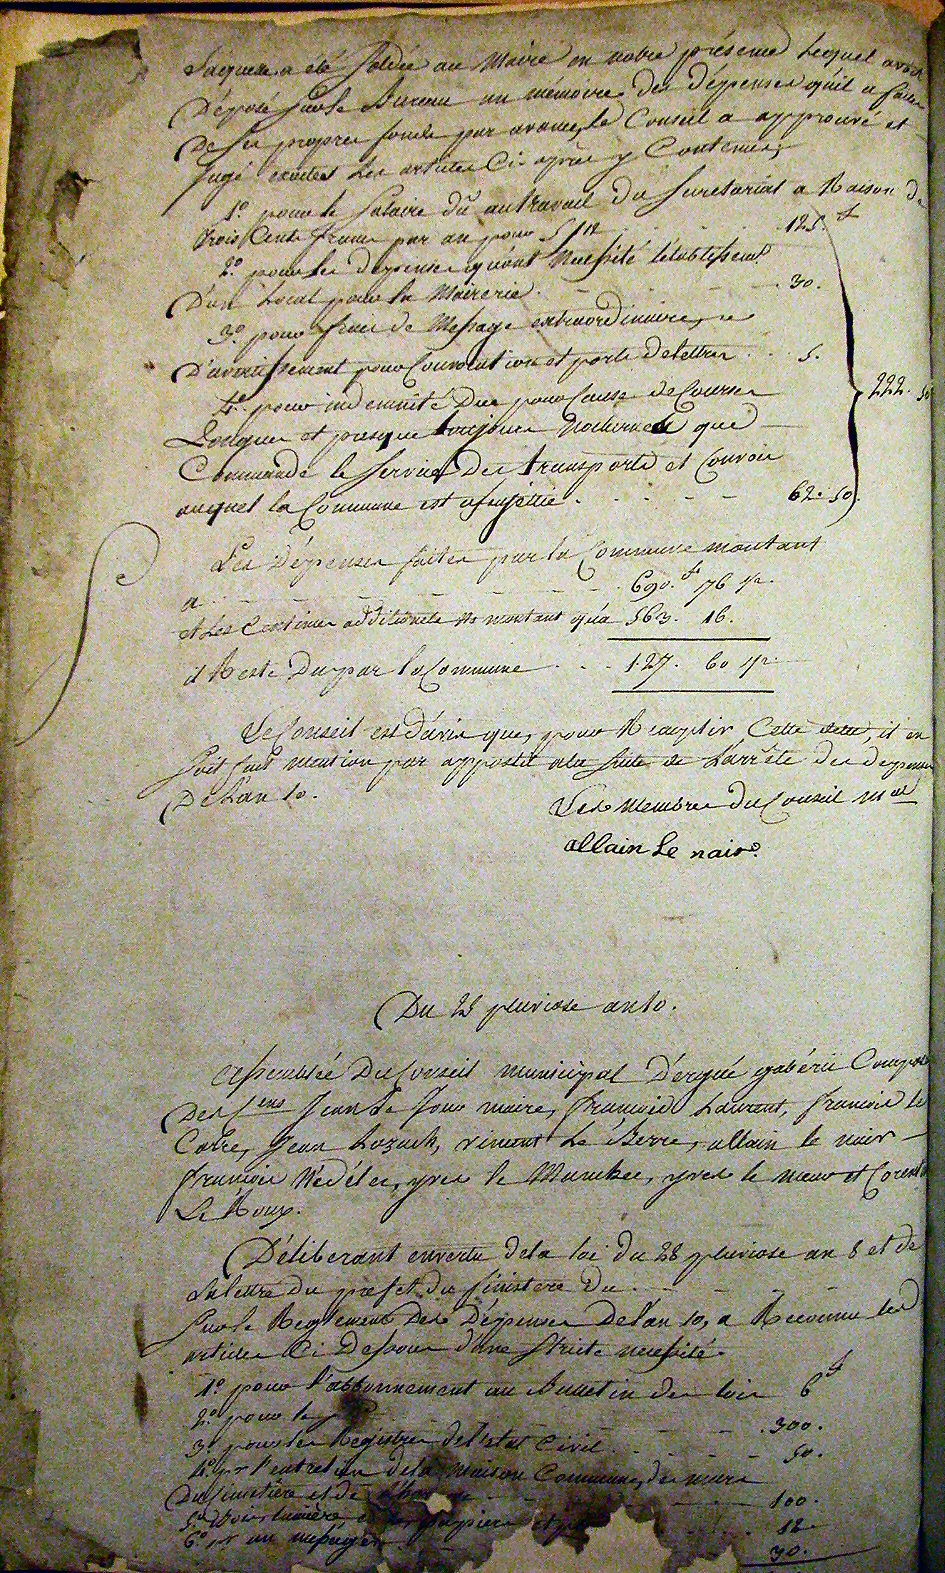 Laquelle a été soldée au Maire en notre présence lequel avoit
Déposé sur le Bureau un mémoire des dépenses qu'il a faites
De ses propres fonds par avance, le Conseil a approuvé et
jugé exactes les articles Ci-après y Contenus,
1º pour le Salaire dû au travail du Secretariat a Raison de
trois Cents francs par an pour 5/12 125.f
2º pour les dépenses qu'ont Necessité l'établissemt
D'un Local pour la Mairerie. 30.
3º pour frais de Message extraordinaire,
D'avertissement pour Convocation et porte de lettres 5.
4º pour indemnité Due pour Cause de Courses
Longues et presque toujours Nocturnes que
Commande le Service Des transports et Convois
auquel la Commune est assujettie. 62. 50.
222. 50
Les Dépenses faites par la Commune montant
a 690.f 76
et Les Centimes additionels ne montant qu'a 563. 16.
il Reste Du par la Commune 127. 60
Le Conseil est d'avis que, pour Remplir Cette dette, il en
soit fait mention par apposition a la suite de L'arrêté des depenses
De l'an 10.
Les Membres du Conseil mal
allain Le nair.
Du 28 pluviose an 10.
Assemblée Du Conseil municipal D'ergué gabéric Composé
Des Sens Jean Le Jour maire, François Laurent, françois le
Cotre, Jean Lozach, vincent Le Berre, allain le nair
françois Nédélec, yves le Munken, yves le meur et Corentin
Le Roux.
Déliberant en vertu de la loi du 28 pluviose an 8 et de
la lettre du prefet du finistere du
Sur le Reglement Des Dépenses De l'an 10, a Reconnu les
articles Ci Dessous d'une Stricte necessité.
1º pour l'abbonnement au Bulletin des lois 6f
2º pour le 300.
3º pour les Registres de l'état Civil 50.
4º pr l'entretien de la maison Commune, des murs
Du Cimetière et de 100.
5º Bois, lumière, papier et 12
6º pr un messager 30.